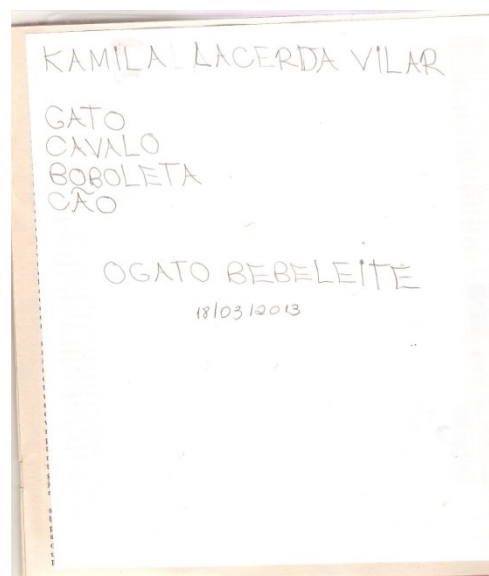 KAMILA LACERDA VILAR
GATO
CAVALO
BOBOLETA
CÃO
OGATO BEBELEITE
18/03/2013